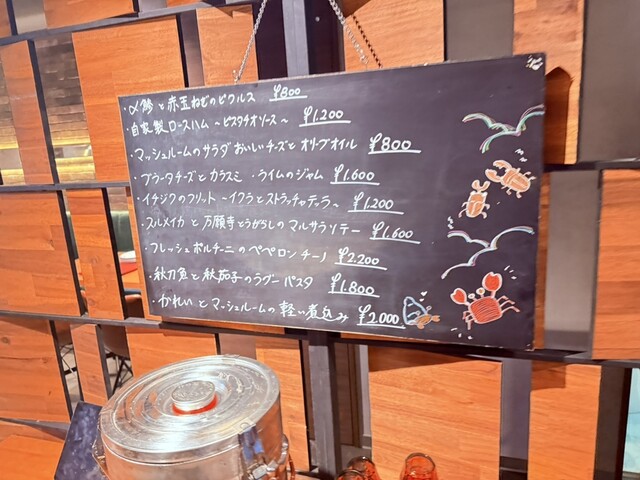 ・〆鯵と赤玉ねぎのピクルス ¥800
・自家製ロースハム ～ピスタチオソース～ ¥1.200
・マッシュルームのサラダ おいしいチーズと オリーブオイル ¥800
・ブラータチーズと カラスミ ライムのジャム ¥1.600
・イチジクのフリット ～イクラとストラッチャテッラ～ ¥1.200
・スルメイカと 万願寺とうがらしの マルサラソテー ¥1.600
・フレッシュポルチーニの ペペロンチーノ ¥2.200
・秋刀魚と秋茄子のラグーパスタ ¥1.800
・かれいと マッシュルームの 軽い煮込み ¥2000